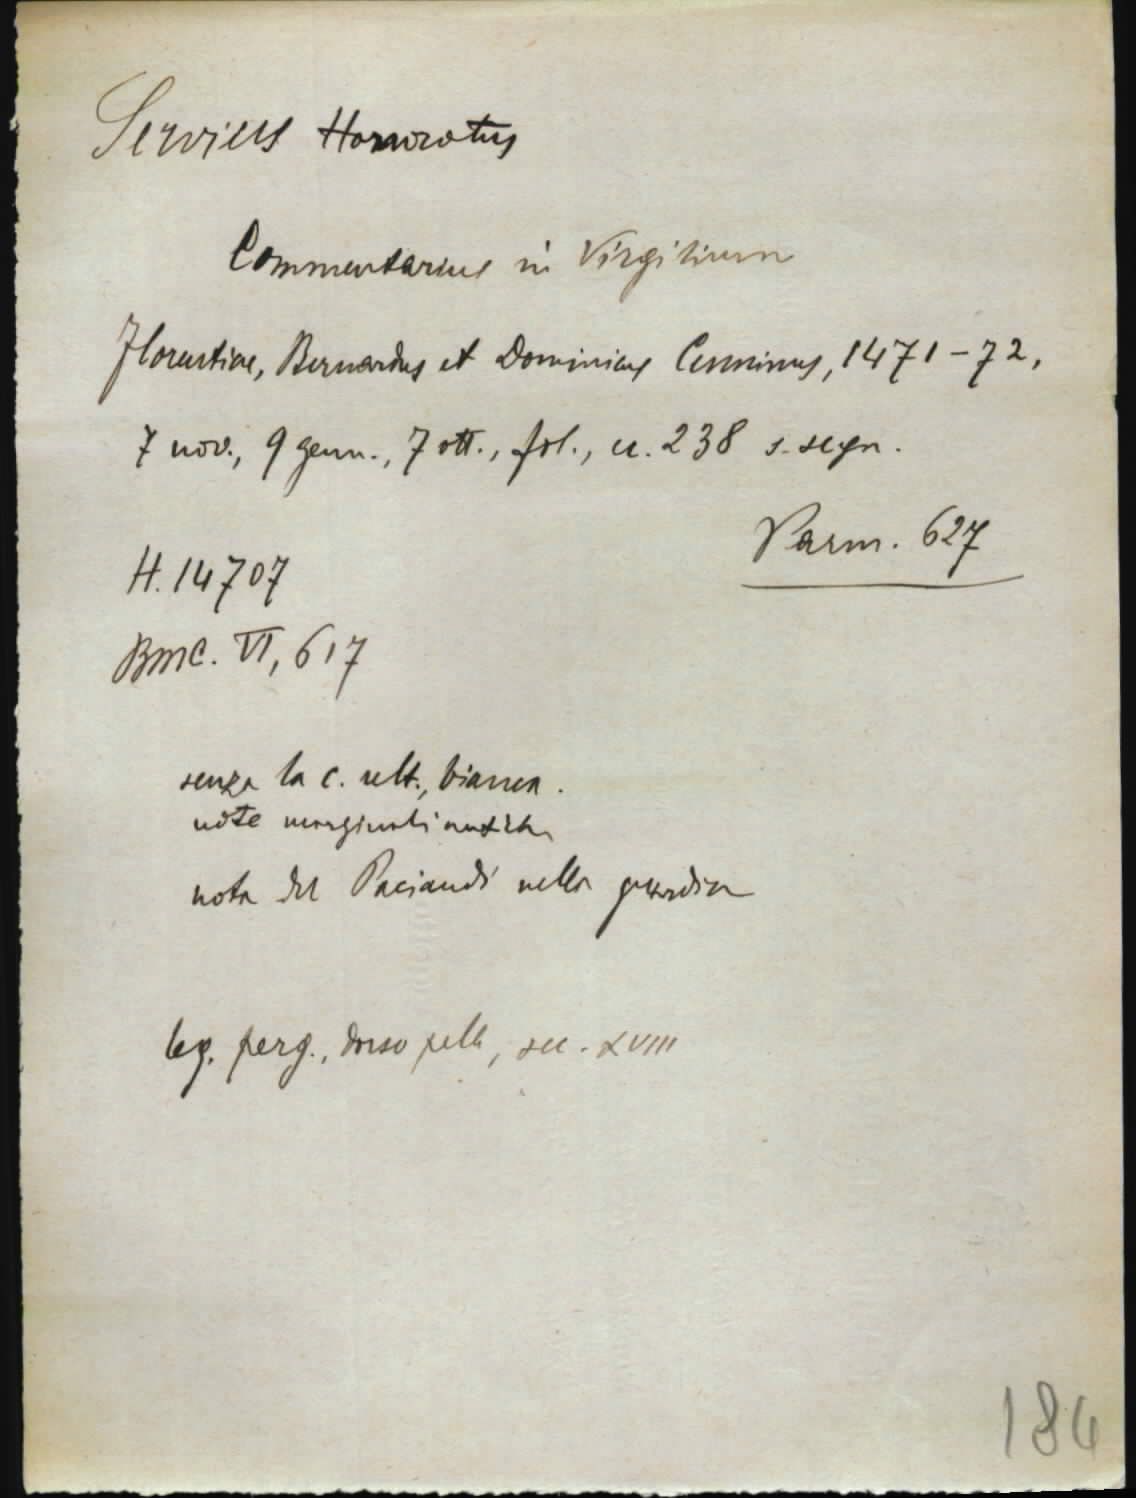 Servius Honoratus
Commentarius in Virgilium
Florentiae, Bernardus et Dominicus Cenninus, 1471-72,
7 nov., 9 genn., 7 ott., fol., cc. 238 s. segn.
Parm. 627
H. 14707
BMC. VI, 617
senza la c. ult., bianca.
note marginali antiche
nota del Paciaudi nella guardia
leg. perg., dorso pelle, sec. XVIII
184